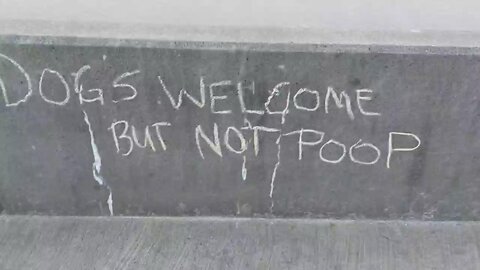 DOG'S WELCOME
BUT NOT POOP